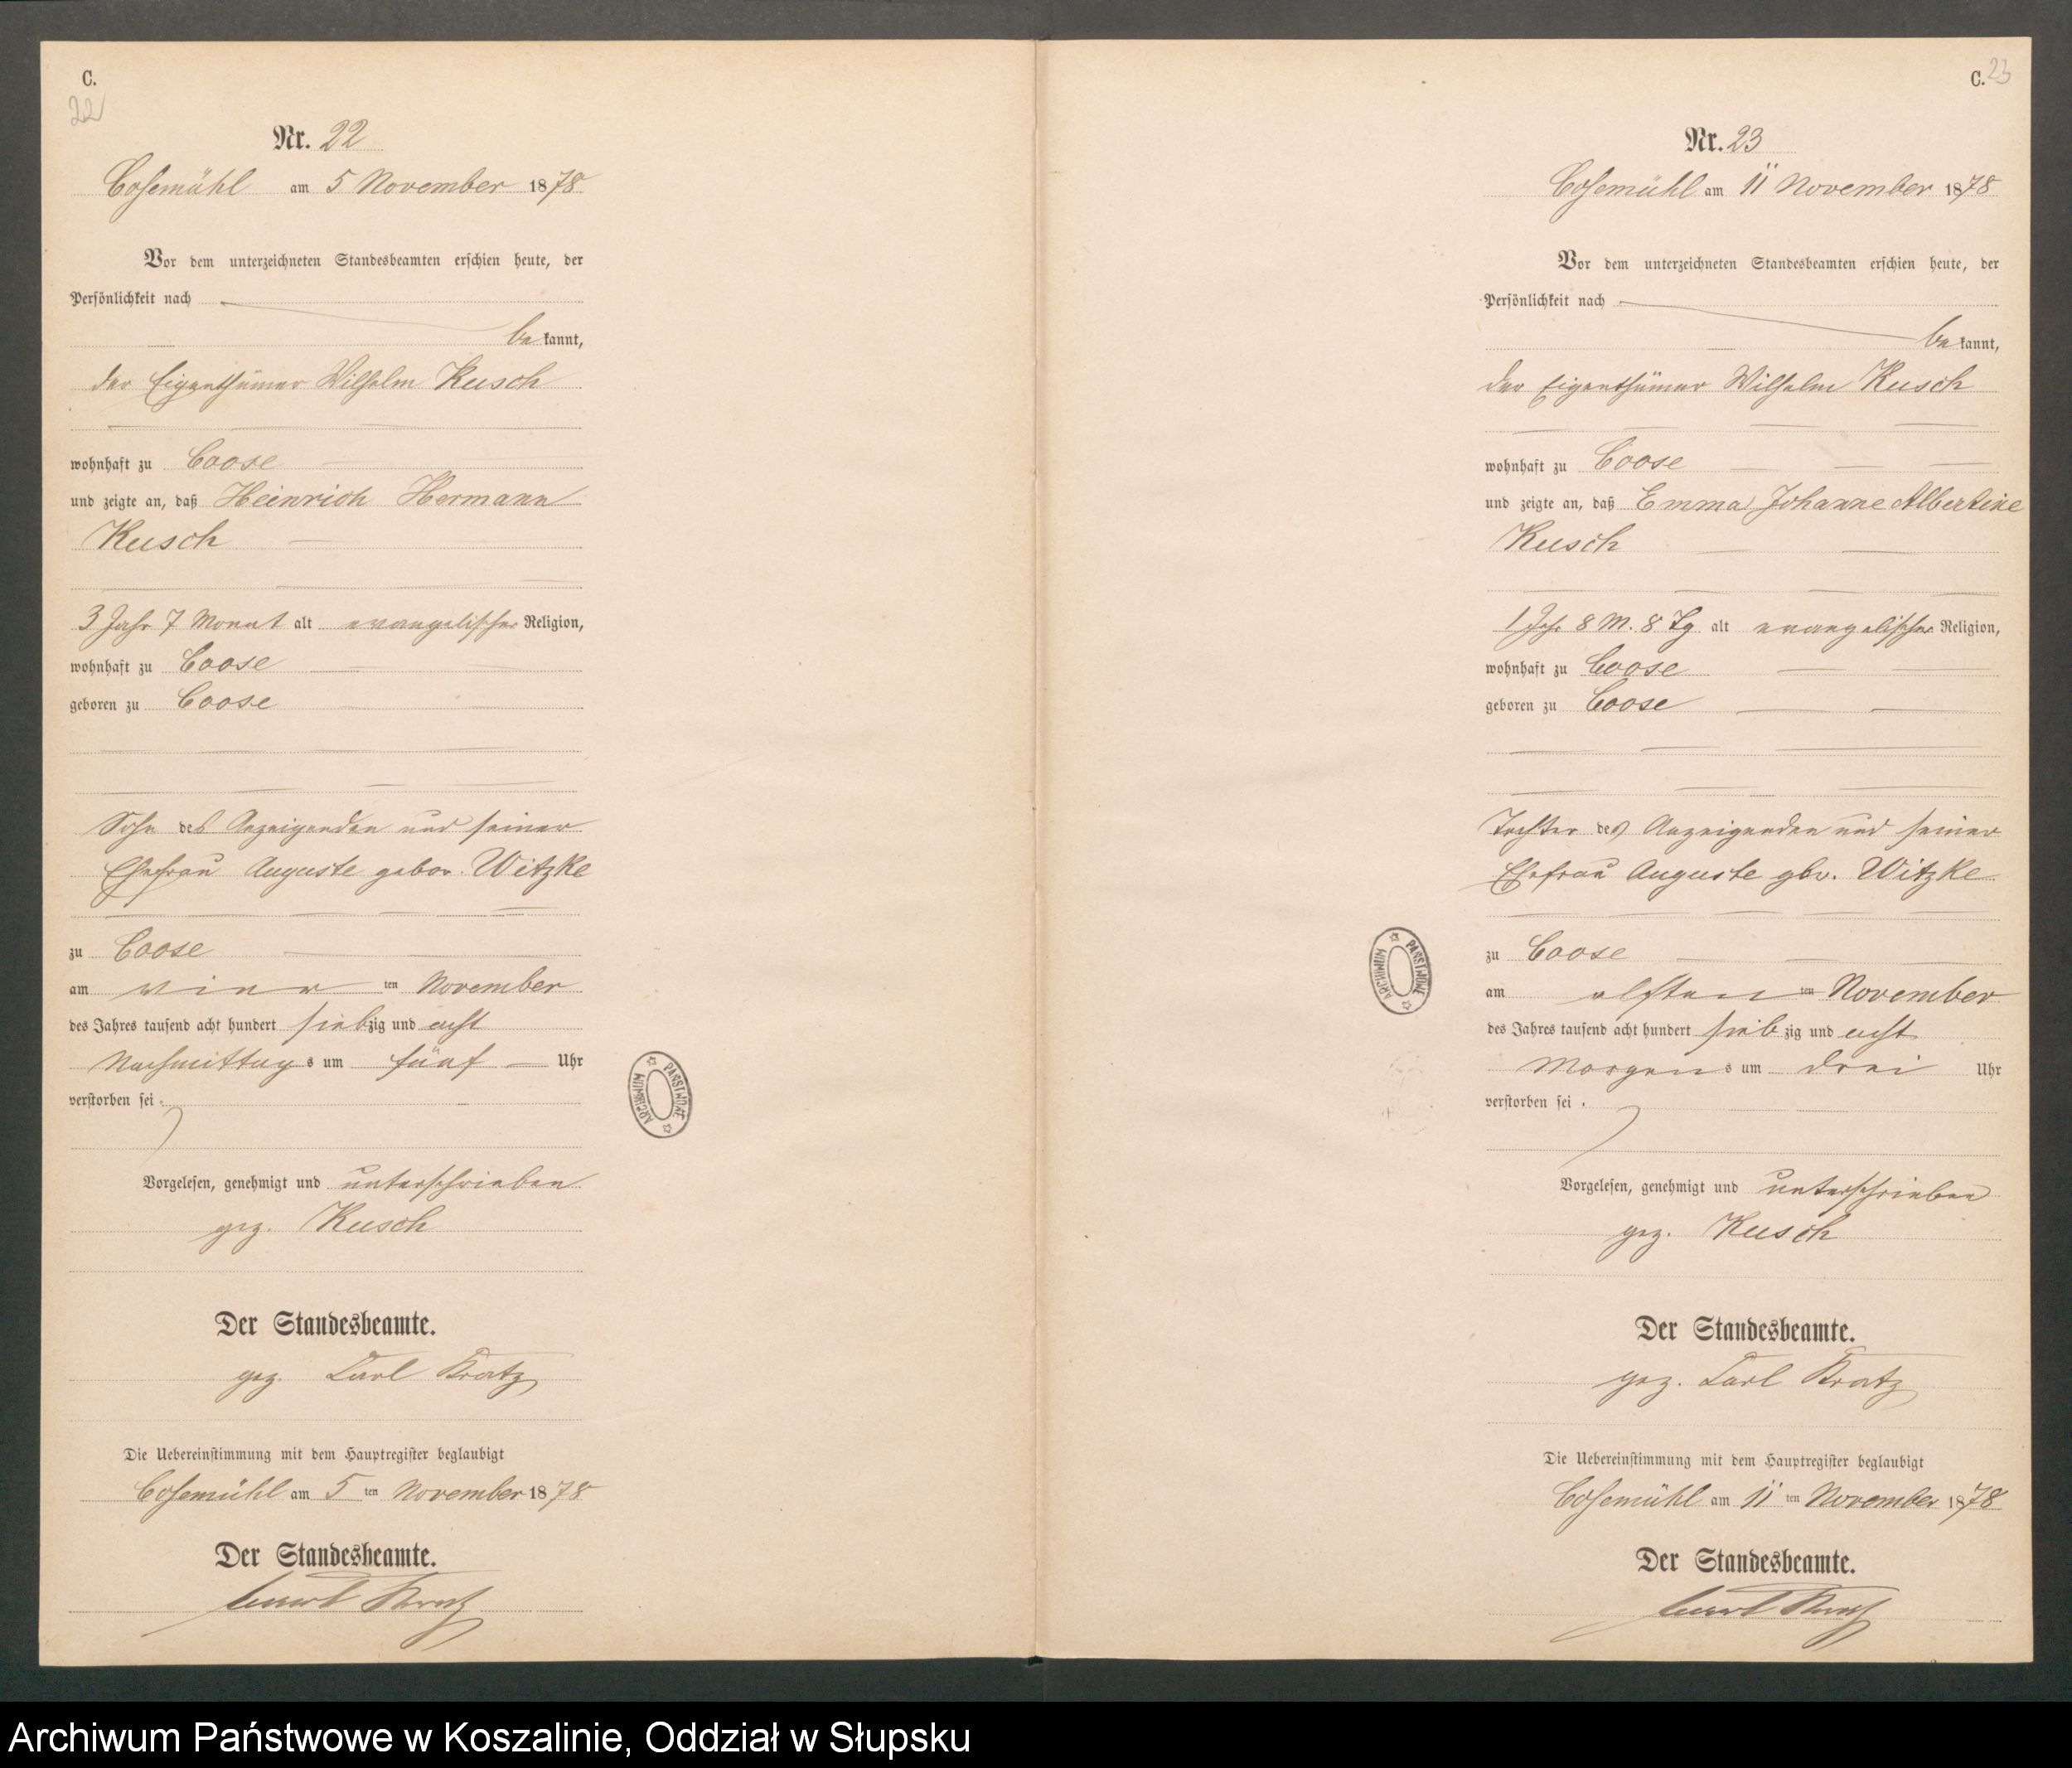 C.
22
Nr. 22
Cosemühl am 5 November 1878
Vor dem unterzeichneten Standesbeamten erschien heute, der
Persönlichkeit nach
be kannt,
der Eigenthümer Wilhelm Kusch
wohnhaft zu Coose
und zeigte an, daß Heinrich Hermann
Kusch
3 Jahr 7 Monat alt evangelischer Religion,
wohnhaft zu Coose
geboren zu Coose
Sohn des Anzeigenden und seiner
Ehefrau Auguste gebor. Witzke
zu Coose
am vier ten November
des Jahres tausend acht hundert siebzig und acht
Nachmittags um fünf Uhr
verstorben sei.
Vorgelesen, genehmigt und unterschrieben
gez. Kusch
Der Standesbeamte.
gez. Carl Kratz
Die Uebereinstimmung mit dem Hauptregister beglaubigt
Cosemühl am 5 ten November 1878
Der Standesbeamte.
Carl Kratz
ARCHIWUM PAŃSTWOWE
C. 23
Nr. 23
Cosemühl am 11 November 1878
Vor dem unterzeichneten Standesbeamten erschien heute, der
Persönlichkeit nach
be kannt,
der Eigenthümer Wilhelm Kusch
wohnhaft zu Coose
und zeigte an, daß Emma Johanne Albertine
Kusch
1 Jahr 8 M. 8 Tg alt evangelischer Religion,
wohnhaft zu Coose
geboren zu Coose
Tochter des Anzeigenden und seiner
Ehefrau Auguste gbr. Witzke
zu Coose
am elften ten November
des Jahres tausend acht hundert siebzig und acht
Morgens um drei Uhr
verstorben sei.
Vorgelesen, genehmigt und unterschrieben
gez. Kusch
Der Standesbeamte.
gez. Carl Kratz
Die Uebereinstimmung mit dem Hauptregister beglaubigt
Cosemühl am 11 ten November 1878
Der Standesbeamte.
Carl Kratz
ARCHIWUM PAŃSTWOWE
Archiwum Państwowe w Koszalinie, Oddział w Słupsku